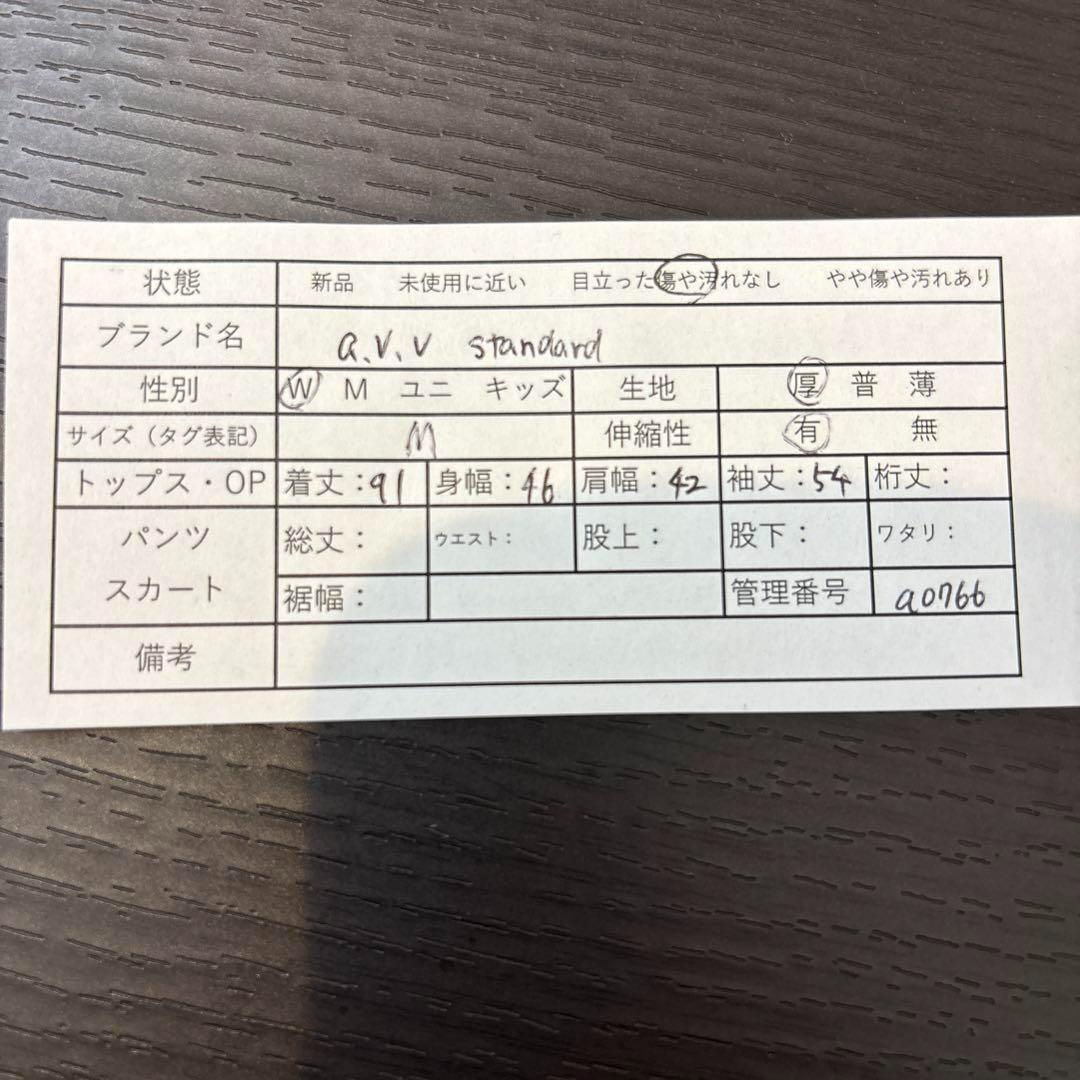 状態 新品 未使用に近い 目立った傷や汚れなし やや傷や汚れあり
ブランド名 a.v.v standard
性別 W M ユニ キッズ 生地 厚 普 薄
サイズ（タグ表記） M 伸縮性 有 無
トップス・OP 着丈：91 身幅：46 肩幅：42 袖丈：54 裄丈：
パンツ 総丈： ウエスト： 股上： 股下： ワタリ：
スカート 裾幅： 管理番号 a0766
備考